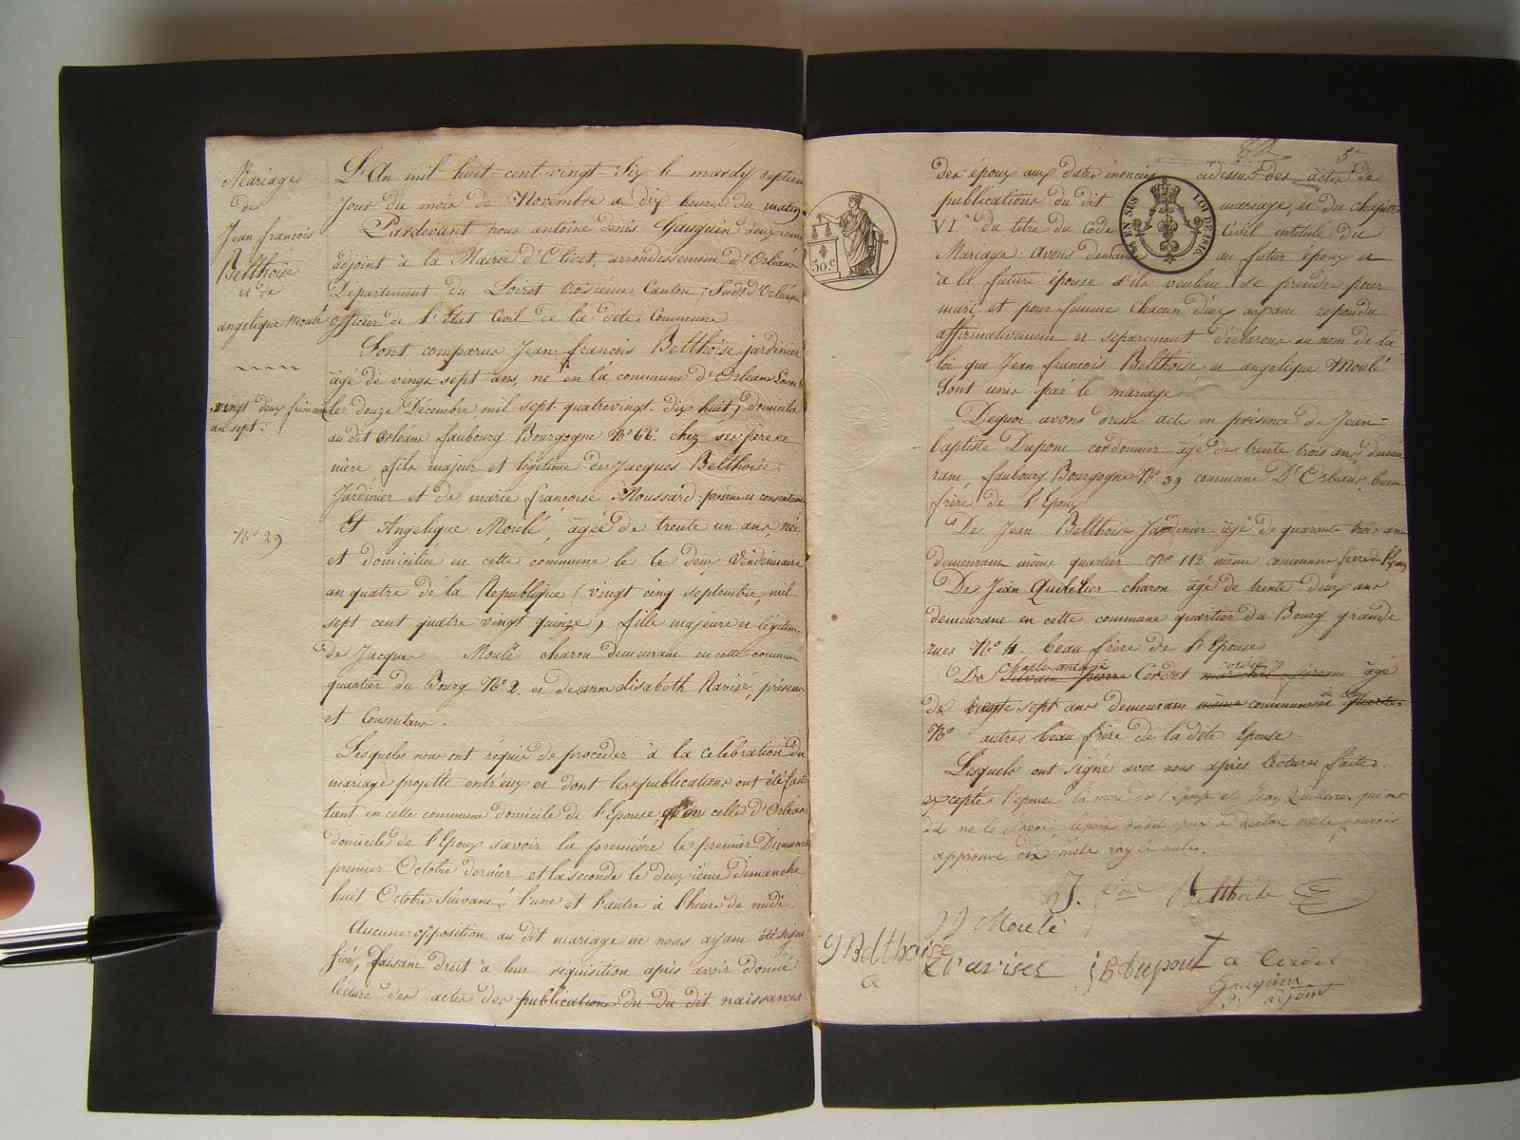 Mariage
de
Jean françois
Belthoise
et de
angelique Moulé
vingt deux frimaire
an sept.
N° 29
L'An mil huit cent vingt Six le mardy septieme
Jour du mois de Novembre a dix heures du matin
Pardevant nous antoine denis Gauguin deuxieme
adjoint à la Mairie d'Olivet, arrondissement d'Orléans
Département du Loiret troisième Canton, Sud d'Orléans
officier de l'Etat Civil de la dite Commune
Sont comparus Jean françois Belthoise jardinier
âgé de vingt sept ans, né en la commune d'Orléans Loiret
le douze Décembre mil sept quatrevingt dix huit, domicilié
au dit Orléans faubourg Bourgogne N° 66. chez ses père et
mère, fils majeur et légitime de Jacques Belthoise
Jardinier et de marie françoise Moussard présents et consentans
Et Angelique Moulé, âgée de trente un ans, née
et domiciliée en cette commune le 6e deux Vendemiaire
an quatre de la Republique (vingt cinq septembre, mil
sept cent quatre vingt quinze), fille majeure et légitime
de Jacques Moulé charon demeurant en cette commune
quartier du Bourg N° 2 et de anne elisabeth Ravisé, présens
et Consentans.
Lesquels nous ont réquis de procéder à la celébration du
mariage projetté entr'eux et dont les publications ont été faites
tant en cette commune domicile de l'Epouse qu'en celle d'Orléans
domicile de l'Epoux savoir la première le premier Dimanche
premier Octobre dernier et la seconde le deuxième dimanche
huit Octobre suivant, l'une et l'autre à l'heure de midi
Aucune opposition au dit mariage ne nous ayant été signi
fiée, faisant droit à leur réquisition après avoir donné
lecture des actes des publications du du dit naissances
5e
des époux aux dates énoncées cidessus des actes de
publications du dit mariage, et du chapitre
VI du titre du Code Civil intitulé du
Mariage: avons demandé au futur époux et
à la future épouse s'ils veulent se prendre pour
mari et pour femme Chacun d'eux ayant repondu
affirmativement et séparément déclarons au nom de la
loi que Jean francois Belthoise et angelique Moulé
Sont unis par le mariage
Dequoi avons dressé acte en présence de Jean
baptiste Dupont cordonnier âgé de trente trois ans demeu
rant, faubourg Bourgogne N° 39 commune D'Orléans, beau
frère de l'Epoux
De Jean Belthoise Jardinier âgé de quarante trois ans
demeurant même quartier N° 112 même commune frère de l'Epoux
De Jean Quetelier charon âgé de trente deux ans
demeurant en cette commune quartier du Bourg grande
rues N° 4. beau frère de l'Epouse
De Silvain Pierre Cordet âgé
de vingt sept ans demeurant même commune quartier
N° autres beau frère de la dite Epouse
Lesquels ont signé avec nous après lecture faite.
excepté l'épouse la mère de l'Epoux et Jean Quetelier qui ont
dit ne le savoir, lecture faite
approuvé dix mots rayés nuls.
J. f.ois Belthoise
J J Moulé
J Belthoise
ravisez
jB Dupont
a Cordet
Gauguin
adjoint
50.c
LOI DE 1816
EN SUS